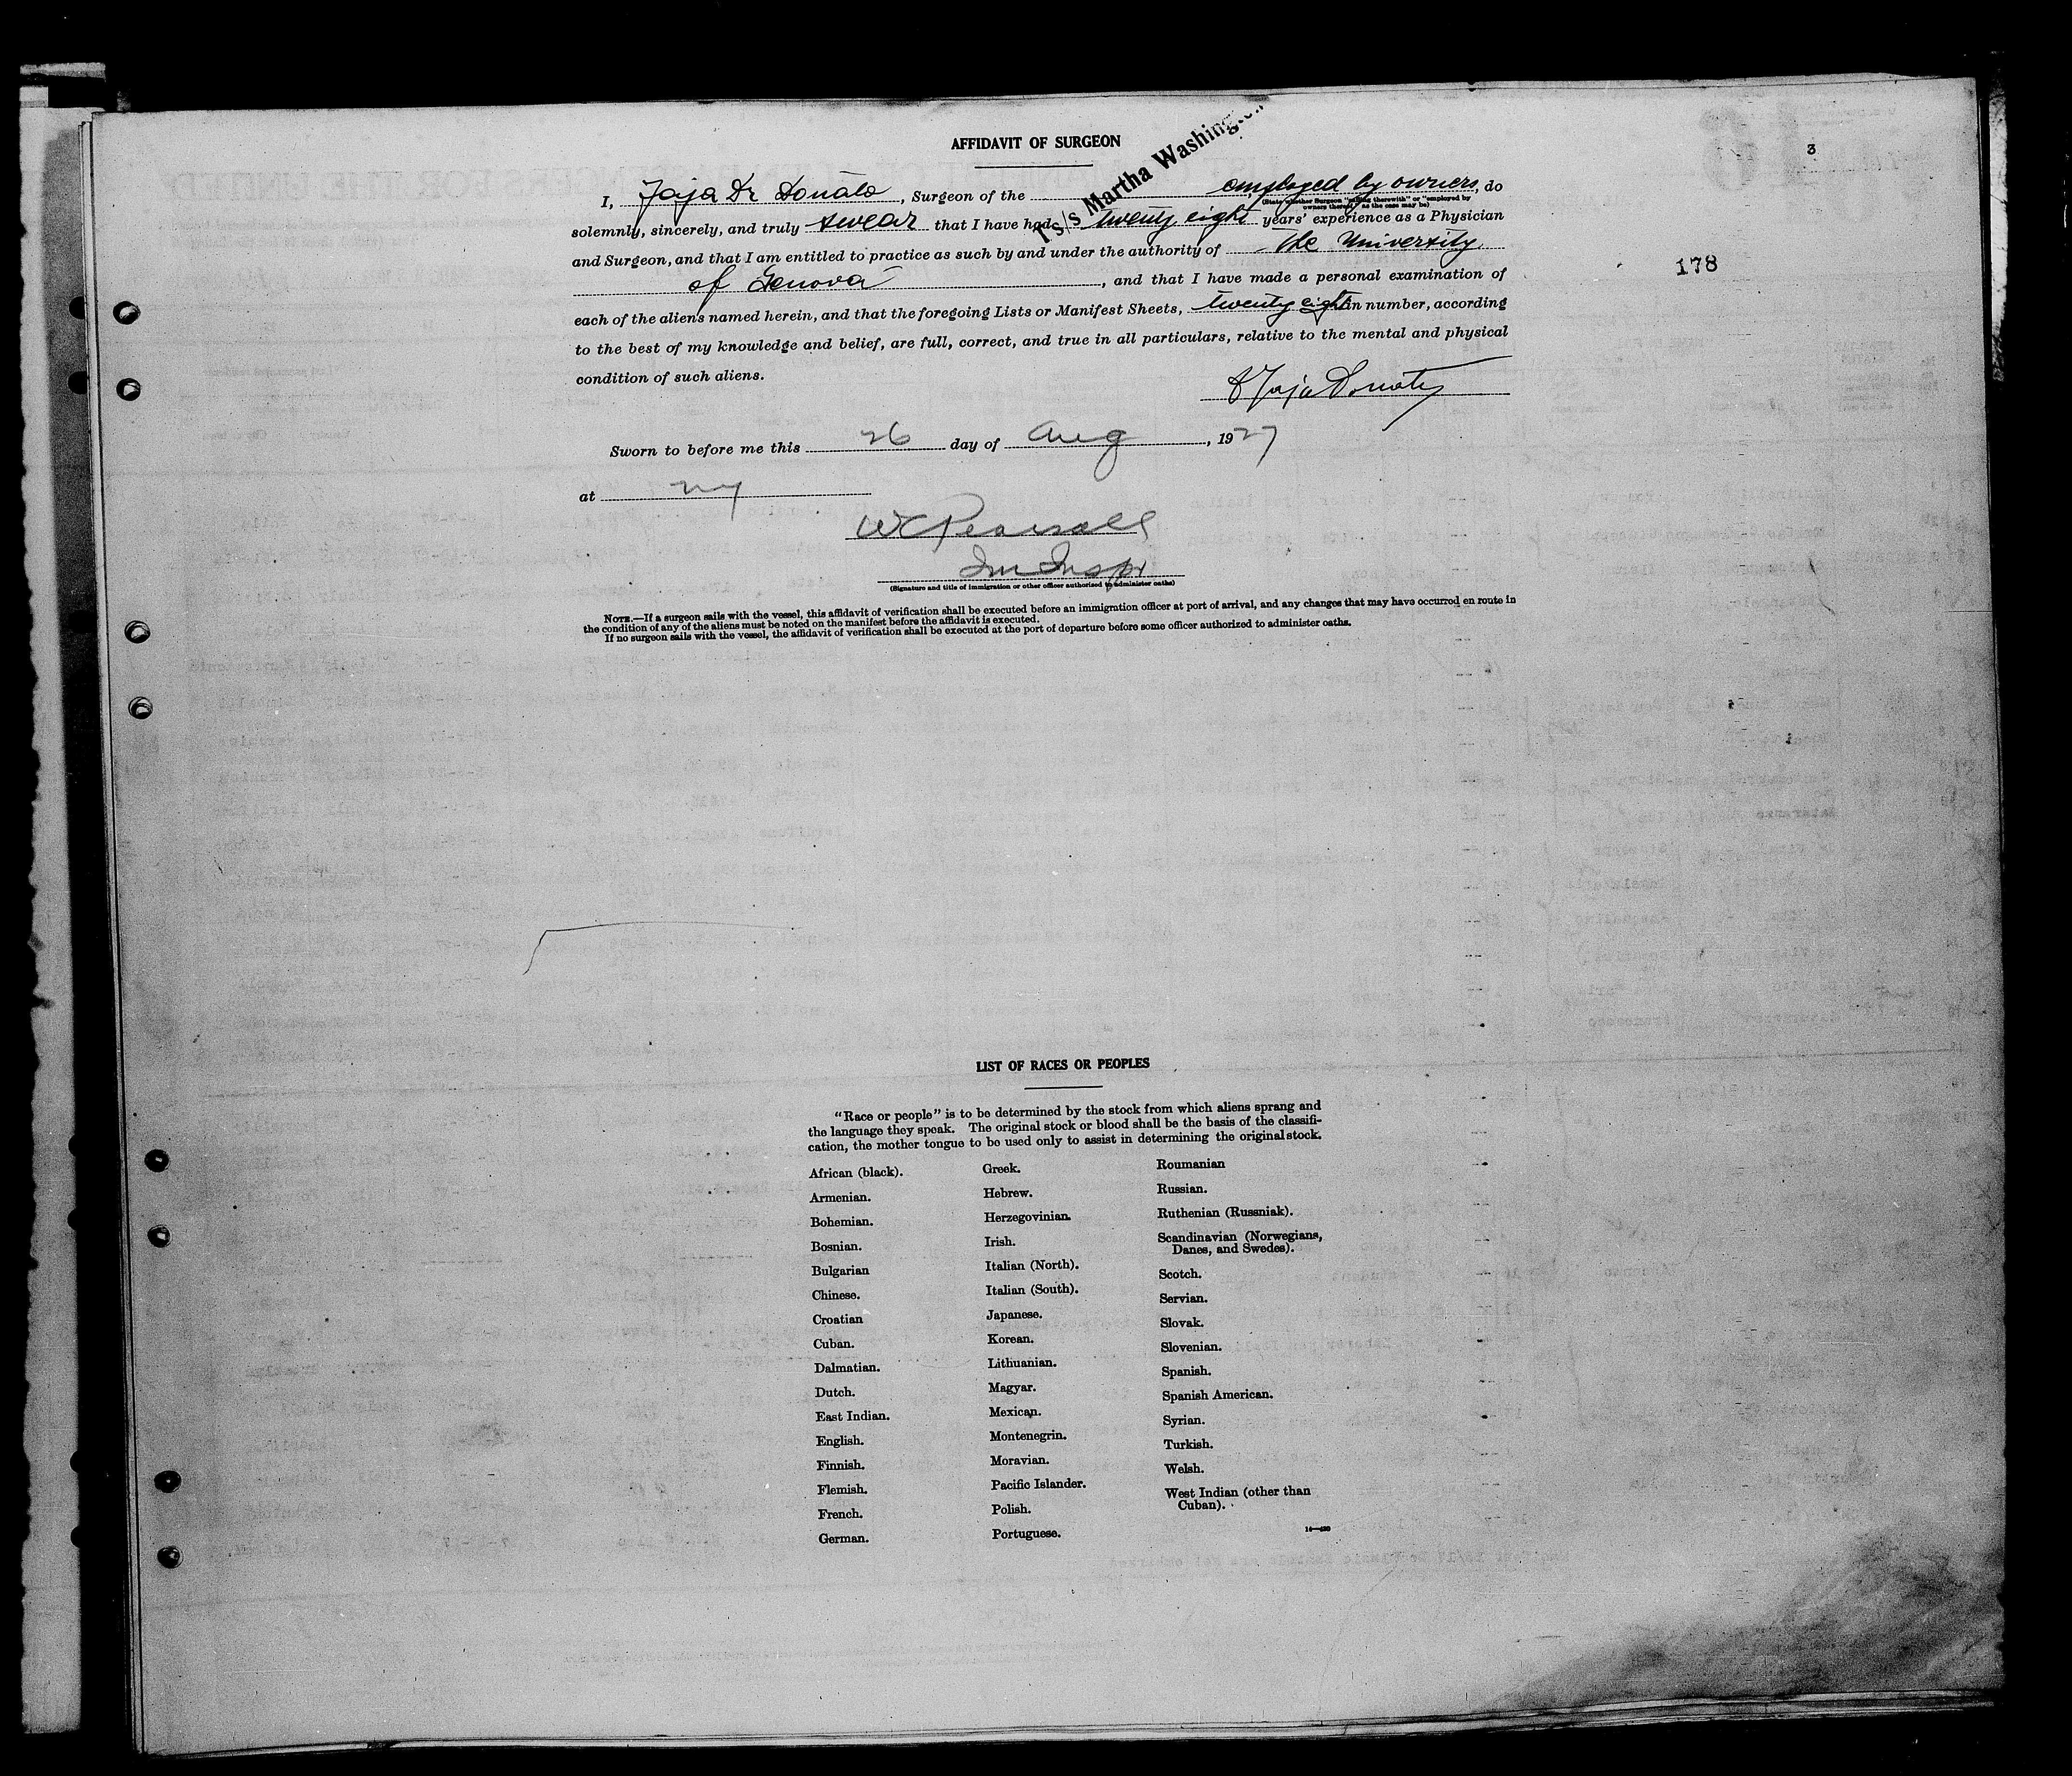 AFFIDAVIT OF SURGEON
3
T s/s Martha Washington
I, Jaja Dr Donato, Surgeon of the employed by owners, do
(State whether Surgeon "sailing therewith" or "employed by owners thereof," as the case may be)
solemnly, sincerely, and truly swear that I have had twenty eight years' experience as a Physician
and Surgeon, and that I am entitled to practice as such by and under the authority of The University
178
of Genova, and that I have made a personal examination of
each of the aliens named herein, and that the foregoing Lists or Manifest Sheets, twenty eight in number, according
to the best of my knowledge and belief, are full, correct, and true in all particulars, relative to the mental and physical
condition of such aliens.
Jaja Donato
Sworn to before me this 26 day of Aug, 1927
at NY
WC Pearsall
Im Inspr
(Signature and title of immigration or other officer authorized to administer oaths)
NOTE.—If a surgeon sails with the vessel, this affidavit of verification shall be executed before an immigration officer at port of arrival, and any changes that may have occurred en route in
the condition of any of the aliens must be noted on the manifest before the affidavit is executed.
If no surgeon sails with the vessel, the affidavit of verification shall be executed at the port of departure before some officer authorized to administer oaths.
LIST OF RACES OR PEOPLES
"Race or people" is to be determined by the stock from which aliens sprang and
the language they speak. The original stock or blood shall be the basis of the classifi-
cation, the mother tongue to be used only to assist in determining the original stock.
African (black).
Armenian.
Bohemian.
Bosnian.
Bulgarian
Chinese.
Croatian
Cuban.
Dalmatian.
Dutch.
East Indian.
English.
Finnish.
Flemish.
French.
German.
Greek.
Hebrew.
Herzegovinian.
Irish.
Italian (North).
Italian (South).
Japanese.
Korean.
Lithuanian.
Magyar.
Mexican.
Montenegrin.
Moravian.
Pacific Islander.
Polish.
Portuguese.
Roumanian
Russian.
Ruthenian (Russniak).
Scandinavian (Norwegians,
Danes, and Swedes).
Scotch.
Servian.
Slovak.
Slovenian.
Spanish.
Spanish American.
Syrian.
Turkish.
Welsh.
West Indian (other than
Cuban).